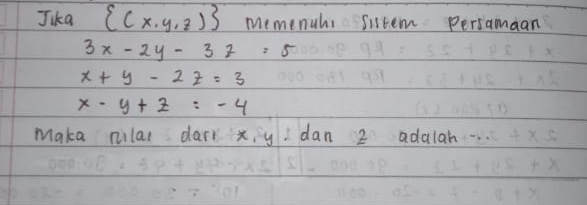 Jika {(x,y,z)} memenuhi sistem persamaan
3x - 2y - 3z = 5
x + y - 2z = 3
x - y + z = -4
Maka nilai dari x, y, dan z adalah ...